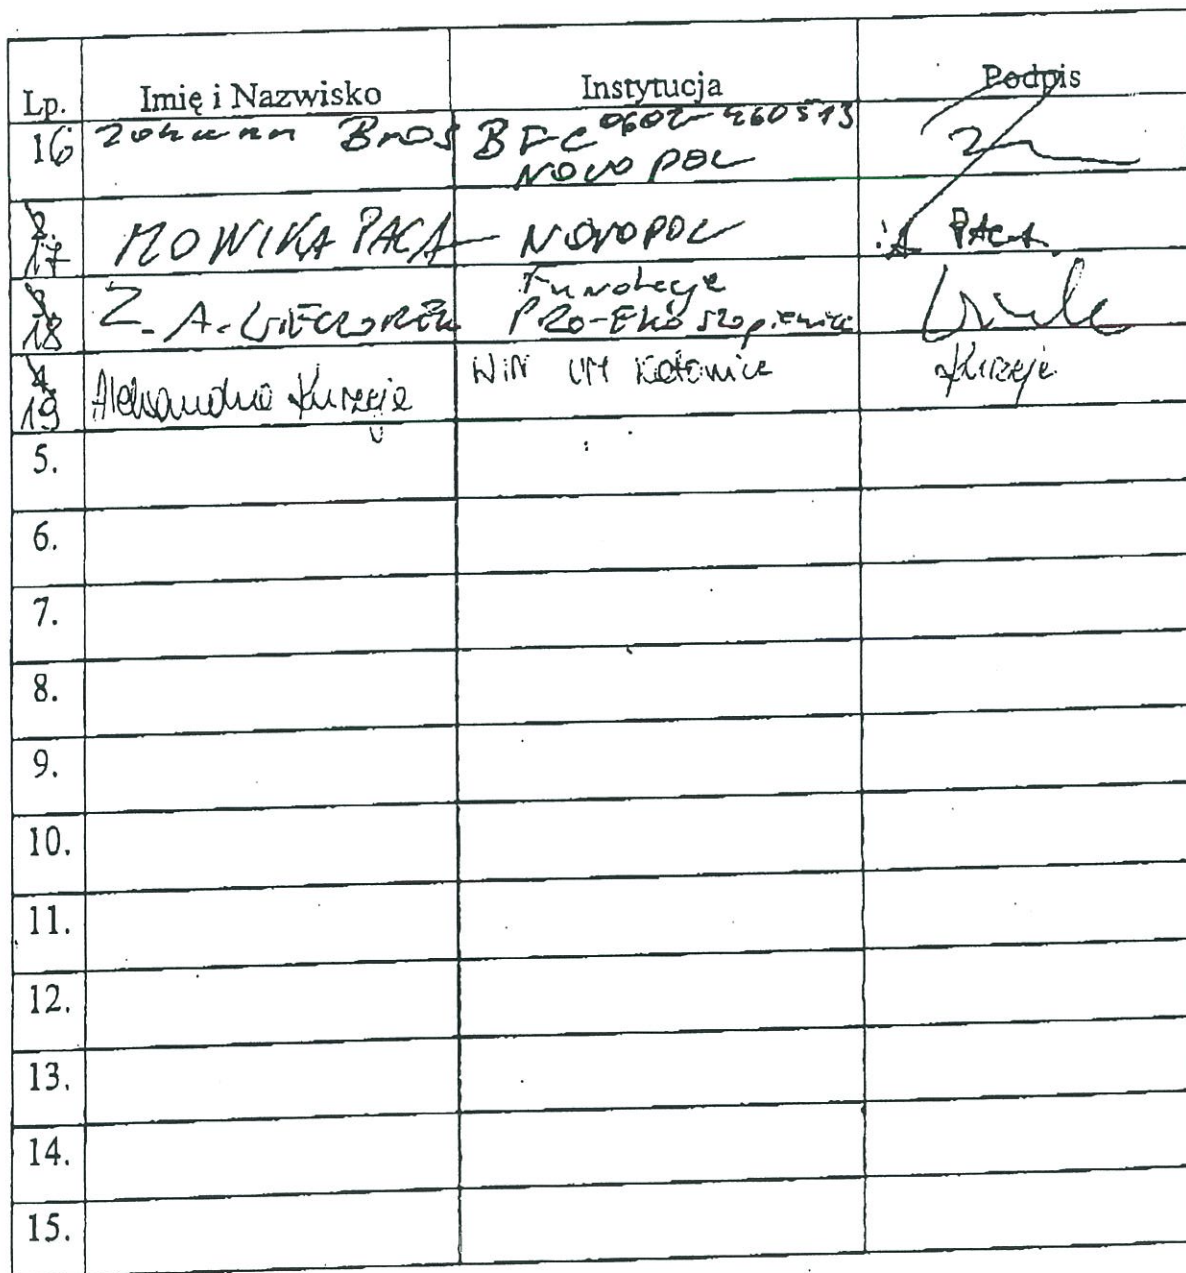 Lp. Imię i Nazwisko Instytucja Podpis
16 Johann Bros BFC 0602-460513
NOVOPOL
2. 17 MONIKA PACA NOVOPOL PACA
3. 18 Z. A. WIECZOREK Fundacja
PRO-EKO Szopienice
4. 19 Aleksandra Kurzeja WIN UM Katowice Kurzeja
5.
6.
7.
8.
9.
10.
11.
12.
13.
14.
15.